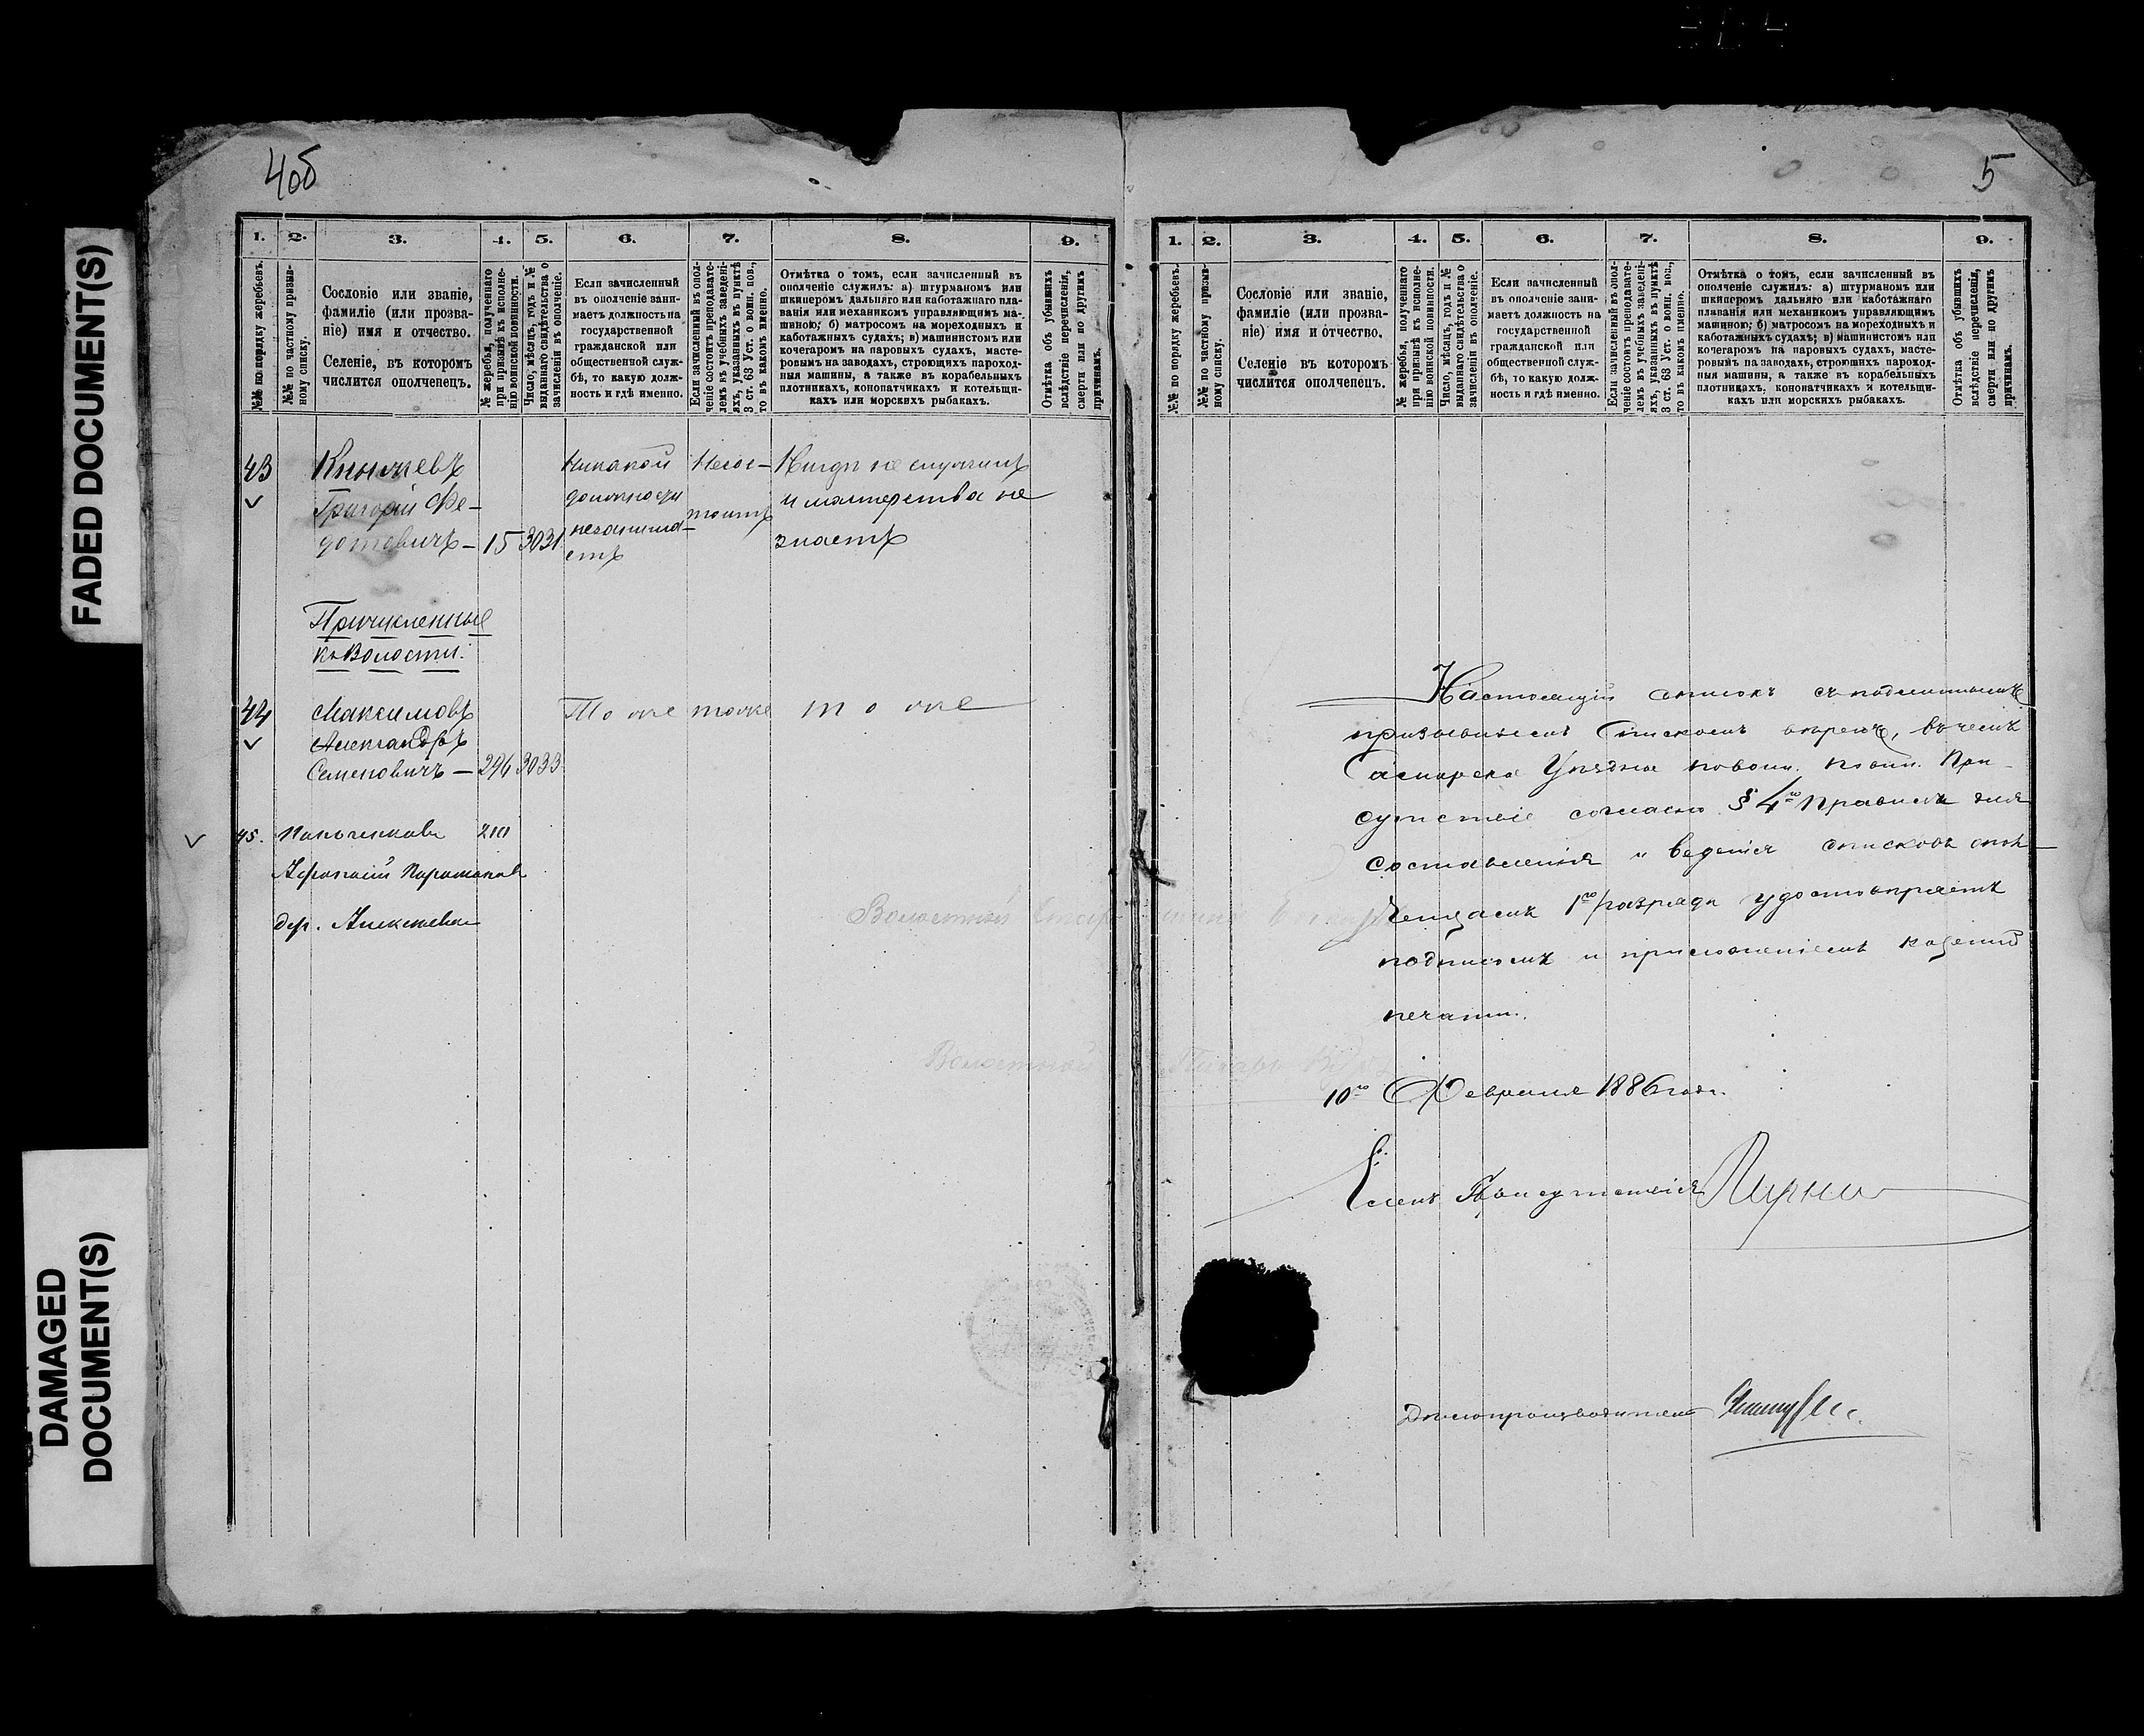 FADED DOCUMENT(S)
DAMAGED
DOCUMENT(S)
4об
1. 2. 3. 4. 5. 6. 7. 8. 9.
№№ по порядку жеребьевъ.
№№ по частному призыв-
ному списку.
Сословіе или званіе,
фамиліе (или прозва-
ніе) имя и отчество.
Селеніе, въ которомъ
числится ополченецъ.
№ жеребья, полученнаго
при призывѣ къ исполне-
нію воинской повинности.
Число, мѣсяцъ, годъ и №
выданнаго свидѣтельства о
зачисленіи въ ополченіе.
Если зачисленный
въ ополченіе зани-
маетъ должность на
государственной
гражданской или
общественной служ-
бѣ, то какую долж-
ность и гдѣ именно.
Если зачисленный въ опол-
ченіе состоитъ преподавате-
лемъ въ учебныхъ заведені-
яхъ, указанныхъ въ пунктѣ
3 ст. 63 Уст. о воин. пов.,
то въ какомъ именно.
Отмѣтка о томъ, если зачисленный въ
ополченіе служилъ: а) штурманомъ или
шкиперомъ дальняго или каботажнаго пла-
ванія или механикомъ управляющимъ ма-
шиною; б) матросомъ на мореходныхъ и
каботажныхъ судахъ; в) машинистомъ или
кочегаромъ на паровыхъ судахъ, масте-
ровымъ на заводахъ, строющихъ пароход-
ныя машины, а также въ корабельныхъ
плотникахъ, конопатчикахъ и котельщи-
кахъ или морскихъ рыбакахъ.
Отмѣтка объ убывшихъ
вслѣдствіе перечисленія,
смерти или по другимъ
причинамъ.
43
Григорій Фе-
дотовичъ — 15 3031
Никакой
должности
незанима-
етъ
Несос-
тоитъ
Нигдѣ не служилъ
и мастерства не
знаетъ
Причисленные
къ Волости:
44 Максимовъ То же тоже то же
Александръ
Семеновичъ — 296 3033
45.
дер. Алексѣевки
Волостный
Волостной Писарь
5
1. 2. 3. 4. 5. 6. 7. 8. 9.
№№ по порядку жеребьевъ.
№№ по частному призыв-
ному списку.
Сословіе или званіе,
фамиліе (или прозва-
ніе) имя и отчество.
Селеніе въ которомъ
числится ополченецъ.
№ жеребья, полученнаго
при призывѣ къ исполне-
нію воинской повинности.
Число, мѣсяцъ, годъ и №
выданнаго свидѣтельства о
зачисленіи въ ополченіе.
Если зачисленный
въ ополченіе зани-
маетъ должность на
государственной
гражданской или
общественной служ-
бѣ, то какую долж-
ность и гдѣ именно.
Если зачисленный въ опол-
ченіе состоитъ преподавате-
лемъ въ учебныхъ заведені-
яхъ, указанныхъ въ пунктѣ
3 ст. 63 Уст. о воин. пов.,
то въ какомъ именно.
Отмѣтка о томъ, если зачисленный въ
ополченіе служилъ: а) штурманомъ или
шкиперомъ дальняго или каботажнаго
плаванія или механикомъ управляющимъ
машиною; б) матросомъ на мореходныхъ и
каботажныхъ судахъ; в) машинистомъ или
кочегаромъ на паровыхъ судахъ, масте-
ровымъ на заводахъ, строющихъ пароход-
ныя машины, а также въ корабельныхъ
плотникахъ, конопатчикахъ и котельщи-
кахъ или морскихъ рыбакахъ.
Отмѣтка объ убывшихъ
вслѣдствіе перечисленія,
смерти или по другимъ
причинамъ.
Настоящій списокъ съ подлиннымъ
призывнымъ спискомъ вѣренъ, въ чемъ
Самарско Уѣздное по воин. повин. При-
сутствіе согласно § 4го Правилъ для
составленія и веденія списковъ опол-
ченцамъ 1го разряда удостовѣряетъ
подписомъ и приложеніемъ казенной
печати.
10го Февраля 1886 года.
Членъ Присутствія
Дѣлопроизводитель